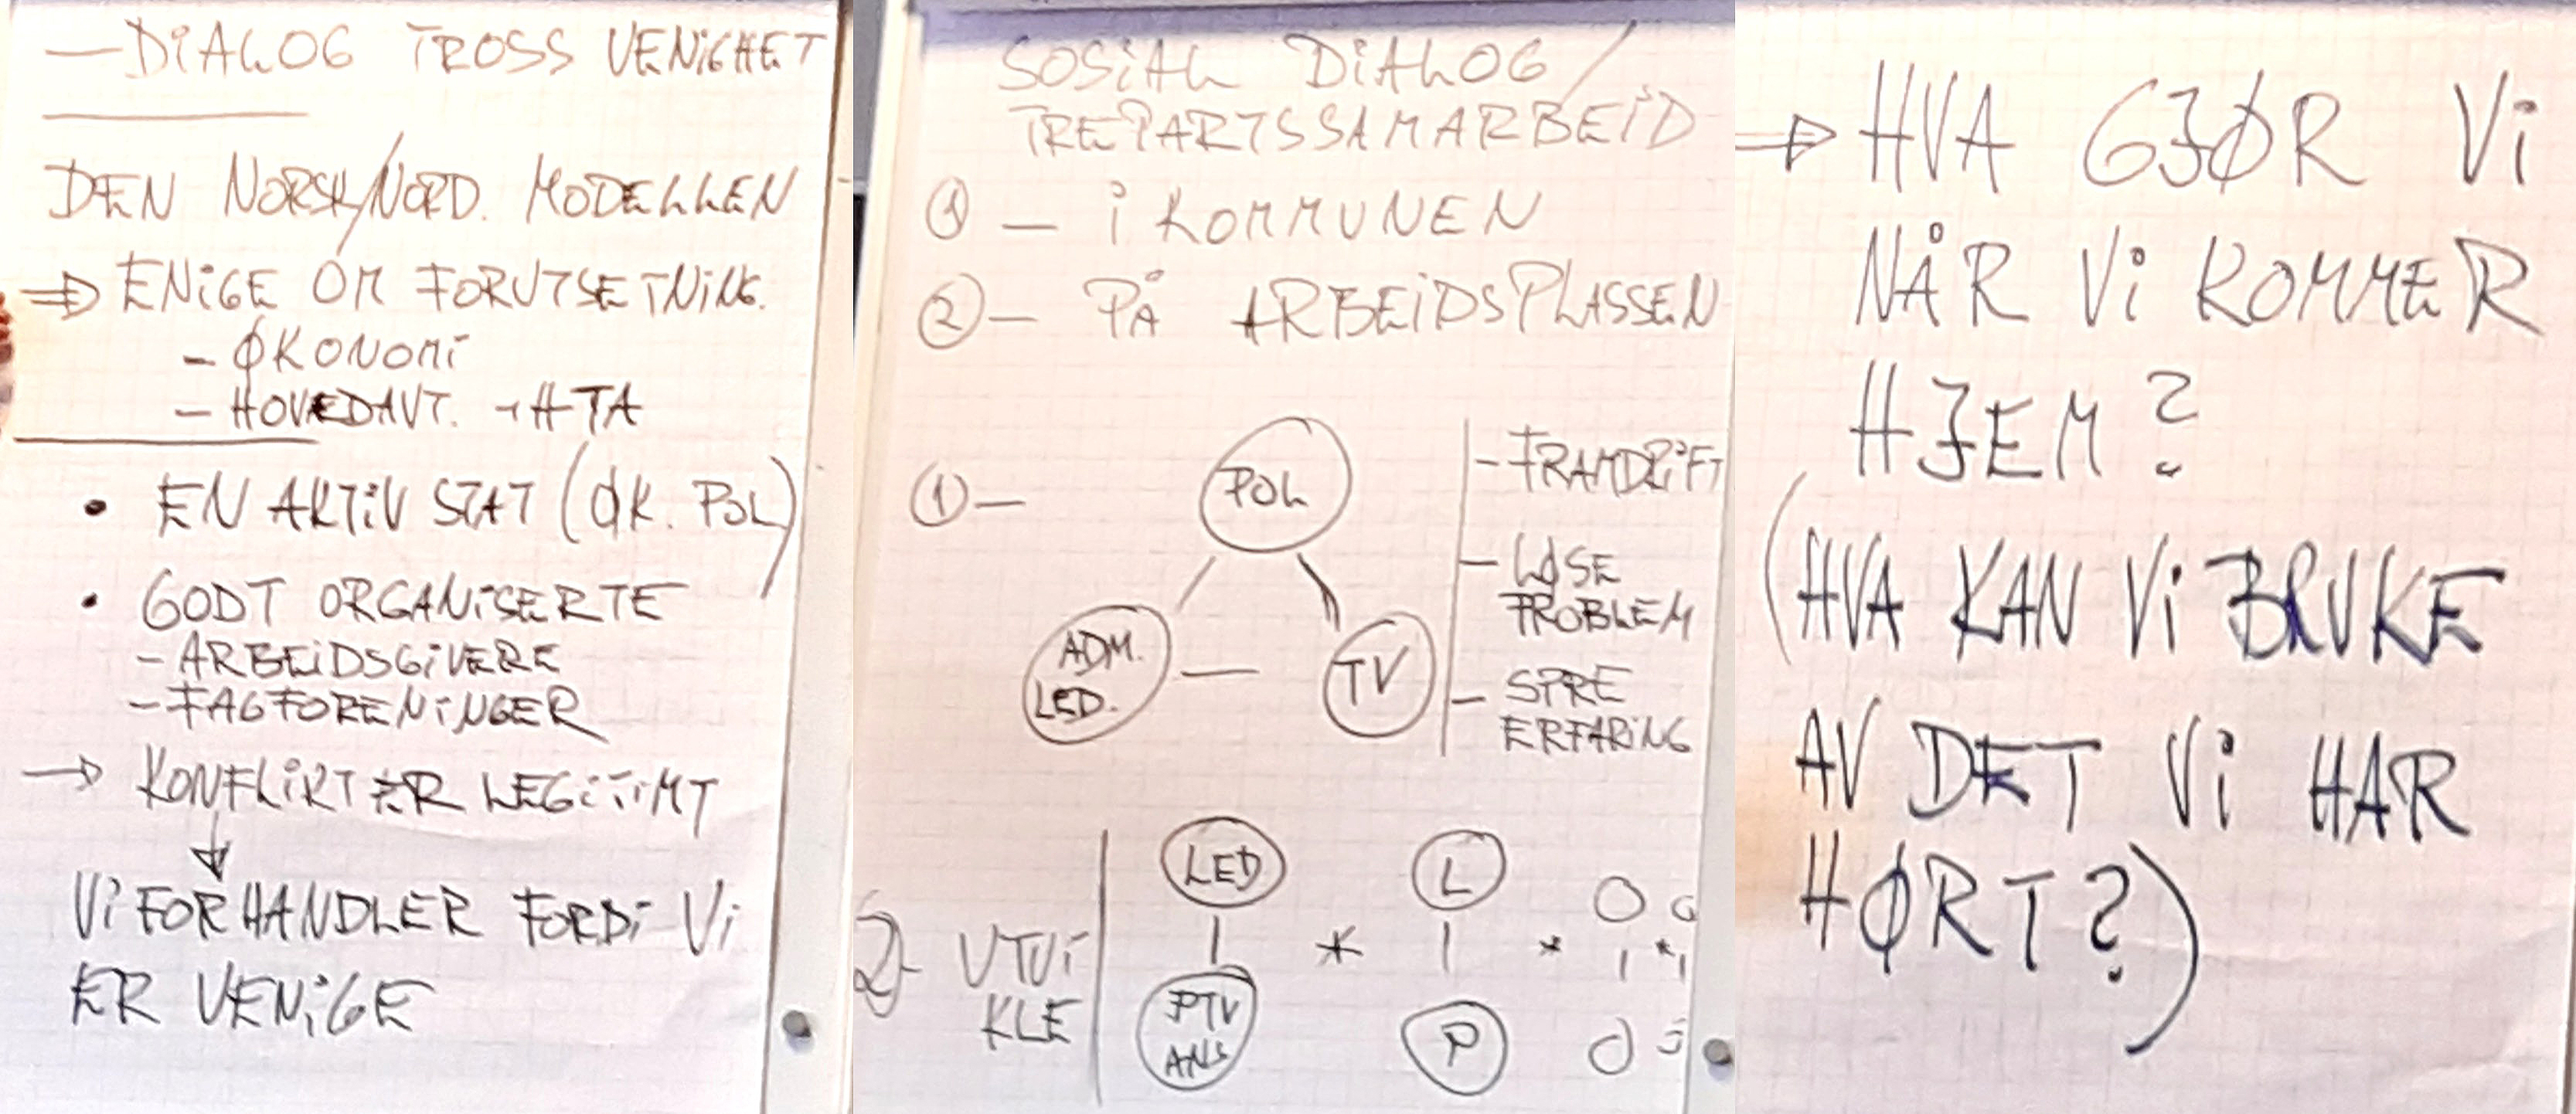 — DIALOG TROSS UENIGHET
DEN NORSK/NORD. MODELLEN
⇒ ENIGE OM FORUTSETNING.
- ØKONOMI
- HOVEDAVT. - HTA
• EN AKTIV STAT (ØK. POL)
• GODT ORGANISERTE
- ARBEIDSGIVERE
- FAGFORENINGER
→ KONFLIKT ER LEGITIMT
VI FORHANDLER FORDI VI
ER UENIGE
SOSIAL DIALOG /
TREPARTSSAMARBEID
① — I KOMMUNEN
② — PÅ ARBEIDSPLASSEN
① —
POL
ADM.
LED.
TV
- FRAMDRIFT
- LØSE
PROBLEM
- SPRE
ERFARING
2)- UTVI
KLE
LED
PTV
ANS
L
P
⇒ HVA GJØR VI
NÅR VI KOMMER
HJEM?
(HVA KAN VI BRUKE
AV DET VI HAR
HØRT?)